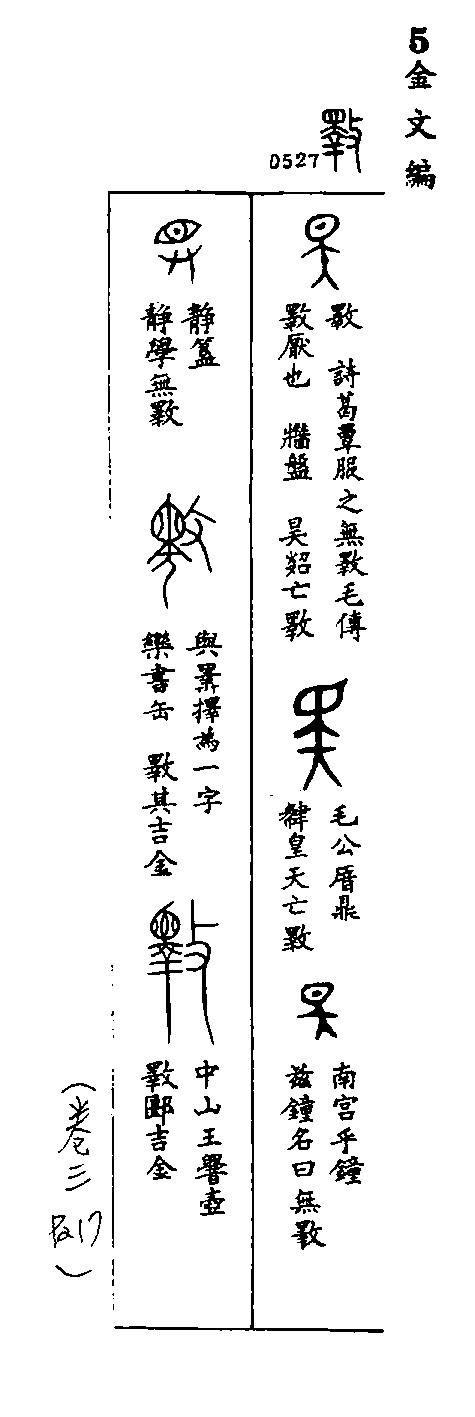 5金文編
0527 斁
斁 詩葛覃服之無斁毛傳
斁厭也 牆盤 昊炤亡斁
毛公厝鼎
肄皇天亡斁
南宫乎鐘
兹鐘名曰無斁
静簋
静學無斁
與睪擇為一字
欒書缶 斁其吉金
中山王壺
斁郾吉金
(卷三 P.17)